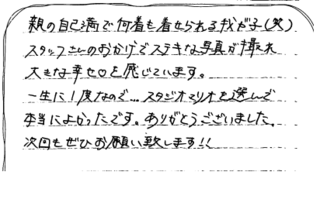 親の自己満で何着も着せられる我が子(笑)
スタッフさんのおかげでステキな写真が撮れ
大きな幸せ♡を感じています。
一生に1度なので…スタジオマリオを選んで
本当によかったです。ありがとうございました。
次回もぜひお願い致します!!